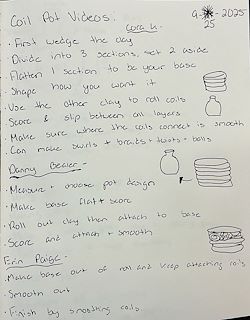 Coil Pot Videos:
Cora L. 9- -2025
25
• First wedge the clay
• Divide into 3 sections, set 2 aside
• Flatten 1 section to be your base
• Shape how you want it
• Use the other clay to roll coils
• Score & slip between all layers
• Make sure where the coils connect is smooth
• Can make swirls + braids + twists + balls
Danny
• Measure + choose pot design
• Make base flat + score
• Roll out clay then attach to base
• Score and attach + smooth
Erin Paige
• Make base out of roll and keep attaching coils
• Smooth out
• Finish by smoothing coils.